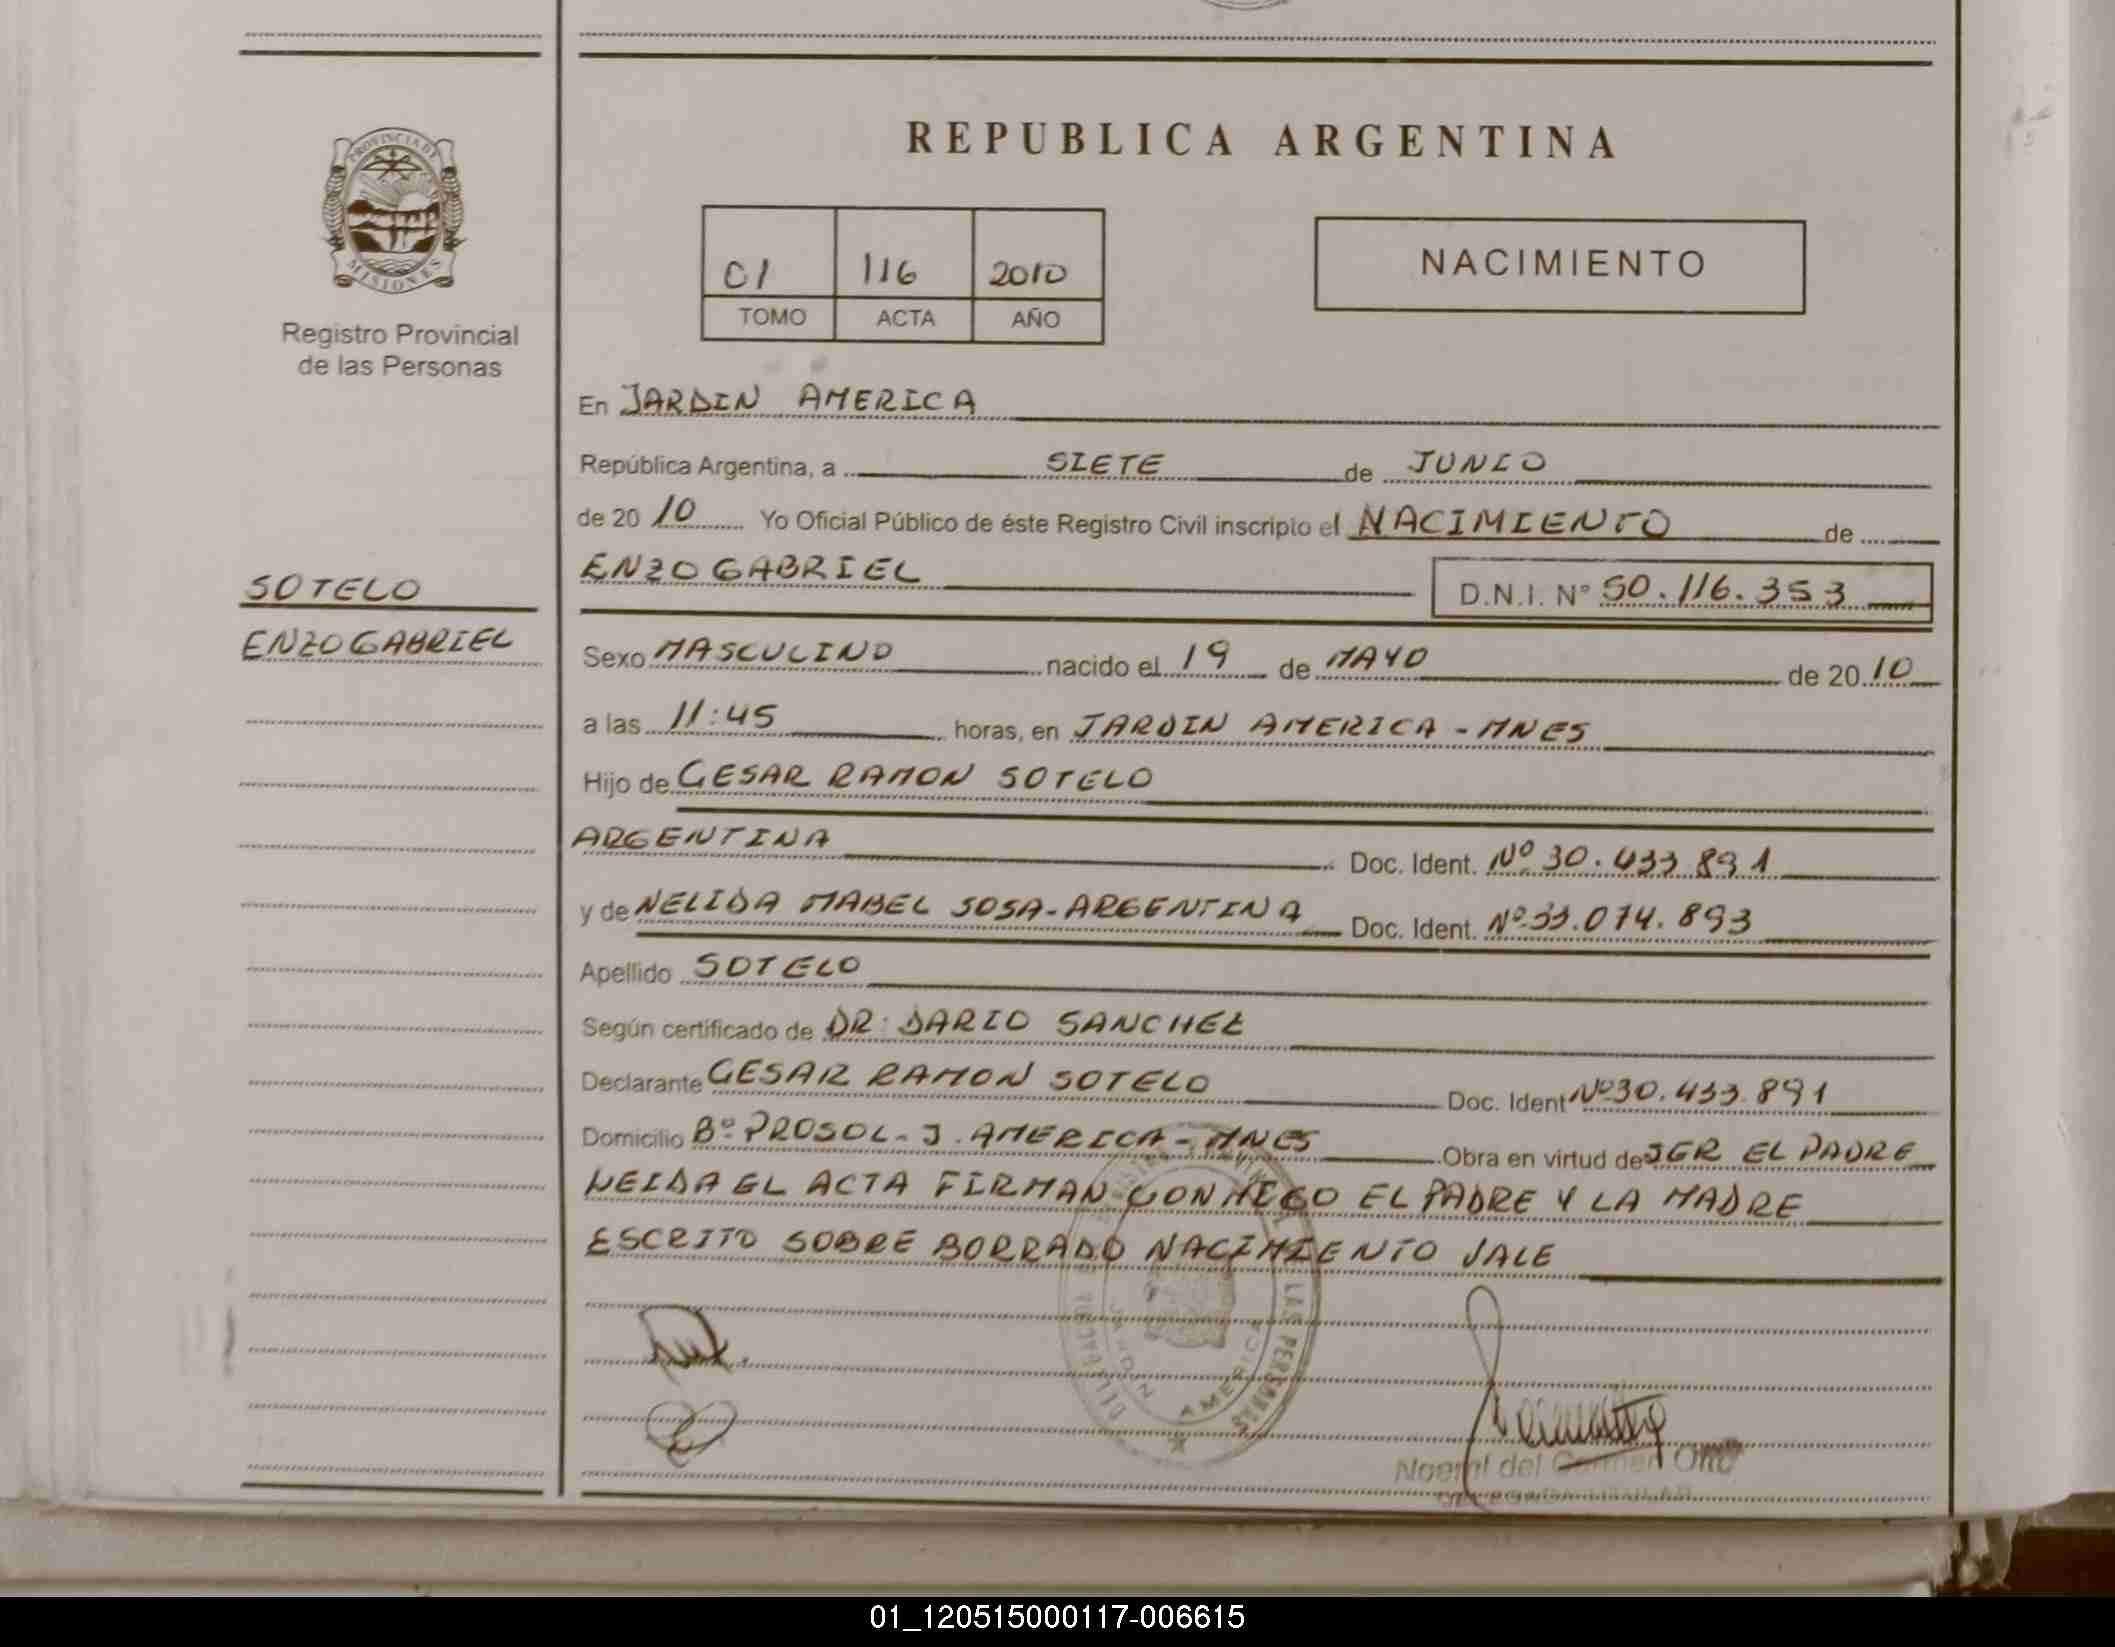 REPUBLICA ARGENTINA
PROVINCIA DE
MISIONES
Registro Provincial
de las Personas
01 116 2010
TOMO ACTA AÑO
NACIMIENTO
SOTELO
ENZO GABRIEL
En JARDIN AMERICA
República Argentina, a SIETE de JUNIO
de 20 10 Yo Oficial Público de éste Registro Civil inscripto el NACIMIENTO de
ENZO GABRIEL D.N.I. N° 50.116.353
Sexo MASCULINO nacido el 19 de MAYO de 20 10
a las 11:45 horas, en JARDIN AMERICA - MNES
Hijo de CESAR RAMON SOTELO
ARGENTINA Doc. Ident. Nº 30.433.891
y de NELIDA MABEL SOSA - ARGENTINA Doc. Ident. Nº 33.074.893
Apellido SOTELO
Según certificado de DR. DARIO SANCHEZ
Declarante CESAR RAMON SOTELO Doc. Ident Nº 30.433.891
Domicilio Bº PROSOL - J. AMERICA - MNES Obra en virtud de SER EL PADRE
LEIDA EL ACTA FIRMAN CONMIGO EL PADRE Y LA MADRE
ESCRITO SOBRE BORRADO NACIMIENTO VALE
LAS PERSONAS
JARDIN AMERICA
Noemi del Carmen
01_120515000117-006615